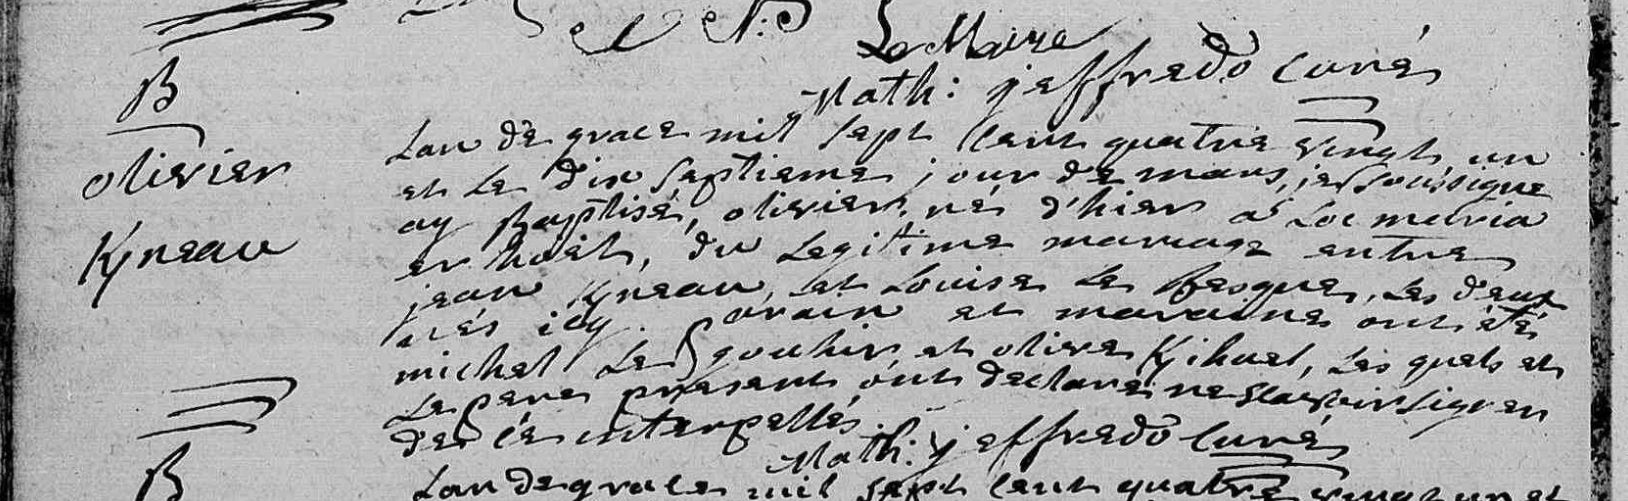 Le Maire
Math: jeffredo curé
B
olivier
Kyneau
Lan de grace mil sept cent quatre vingt un
et le dix septieme jour de mars, je soussigne
ay Baptisé, olivier, né d'hier a Loc melria
er hoët, du legitime mariage entre
jean Kyneau, et Louise Le Besque, Les deux
nés icy. parain et maraine ont été
michel Le gouhir, et olive Kihuel, Les quels et
Le pere présents ont declaré ne scavoir signer
de ce interpellés.
Math: jeffredo curé
B
Lan de grace mil sept cent quatre vingt un et